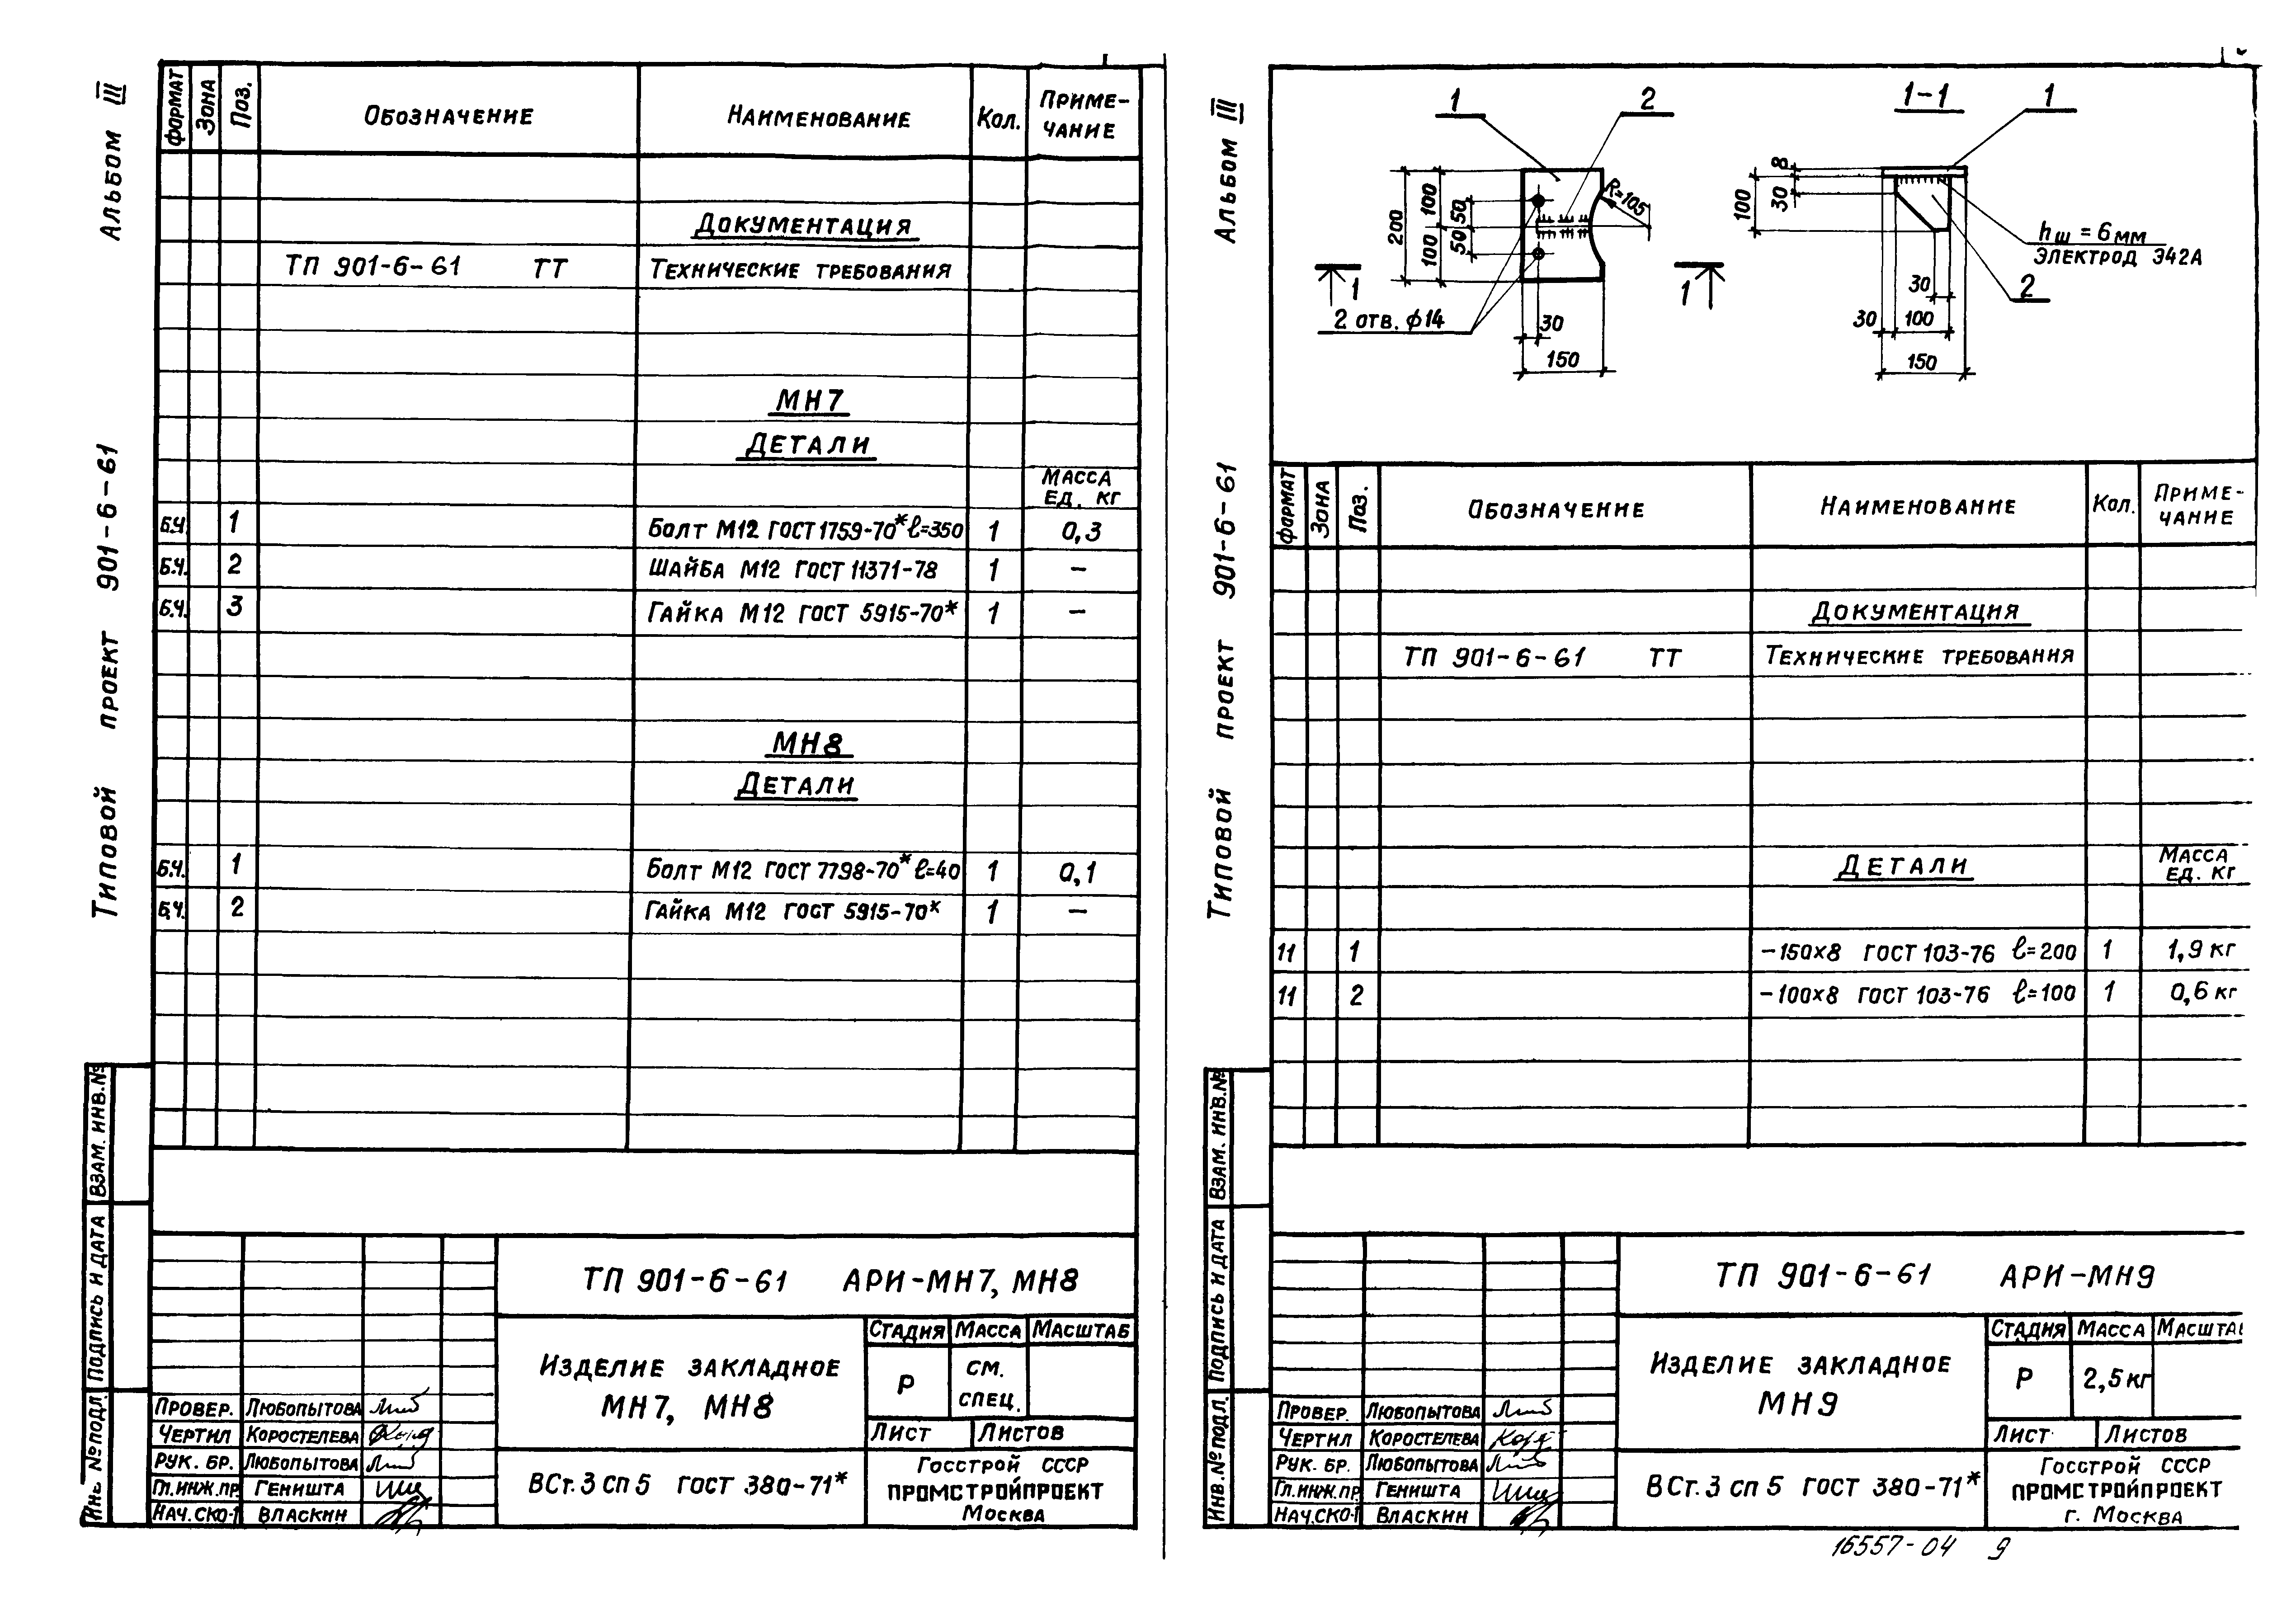 Альбом III
Типовой проект 901-6-61
Формат Зона Поз. Обозначение Наименование Кол. Приме-
чание
Документация
ТП 901-6-61 ТТ Технические требования
МН7
Детали
Масса
ед. кг
Б.Ч. 1 Болт М12 ГОСТ 1759-70* ℓ=350 1 0,3
Б.Ч. 2 Шайба М12 ГОСТ 11371-78 1 –
Б.Ч. 3 Гайка М12 ГОСТ 5915-70* 1 –
МН8
Детали
Б.Ч. 1 Болт М12 ГОСТ 7798-70* ℓ=40 1 0,1
Б.Ч. 2 Гайка М12 ГОСТ 5915-70* 1 –
Взам. инв. №
Подпись и дата
Инв № подл.
ТП 901-6-61 АРИ-МН7, МН8
Изделие закладное
МН7, МН8
Стадия Масса Масштаб
Р см.
спец.
Лист Листов
Провер. Любопытова
Чертил Коростелева
Рук. бр. Любопытова
Гл.инж.пр Геништа
Нач.СКО-1 Власкин
ВСт.3 сп 5 ГОСТ 380-71*
Госстрой СССР
ПРОМСТРОЙПРОЕКТ
Москва
Альбом III
Типовой проект 901-6-61
1 2
R=105
200
100
100
50
50
1 1
2 отв. ф14
30
150
1-1 1
8
30
100
hш = 6 мм
Электрод Э42А
2
30
30 100
150
Формат Зона Поз. Обозначение Наименование Кол. Приме-
чание
Документация
ТП 901-6-61 ТТ Технические требования
Детали
Масса
ед. кг
11 1 –150х8 ГОСТ 103-76 ℓ=200 1 1,9 кг
11 2 –100х8 ГОСТ 103-76 ℓ=100 1 0,6 кг
Взам. инв. №
Подпись и дата
Инв. № подл.
ТП 901-6-61 АРИ-МН9
Изделие закладное
МН9
Стадия Масса Масштаб
Р 2,5 кг
Лист Листов
Провер. Любопытова
Чертил Коростелева
Рук. бр. Любопытова
Гл.инж.пр Геништа
Нач.СКО-1 Власкин
ВСт.3 сп 5 ГОСТ 380-71*
Госстрой СССР
ПРОМСТРОЙПРОЕКТ
г. Москва
16557-04 9